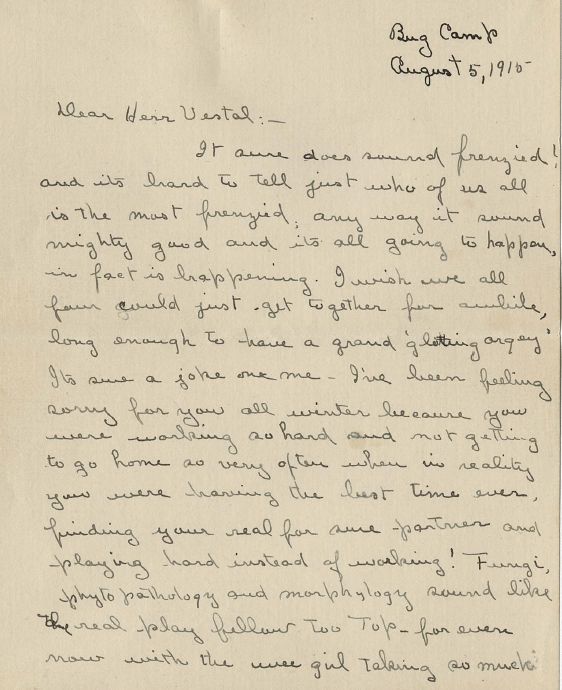 Bug Camp
August 5, 1915
Dear Herr Vestal:—
It sure does sound frenzied!
and its hard to tell just who of us all
is the most frenzied, any way it sound
mighty good and its all going to happen,
in fact is happening. I wish we all
four could just get together for awhile,
long enough to have a grand 'gloting orgey'
Its sure a joke one me - I've been feeling
sorry for you all winter because you
were working so hard and not getting
to go home so very often when in reality
you were having the best time ever,
finding your real for sure partner and
playing hard instead of working! Fungi,
phytopathology and morphylogy sound like
the real play fellow too Top - for even
now with the wee girl taking so much